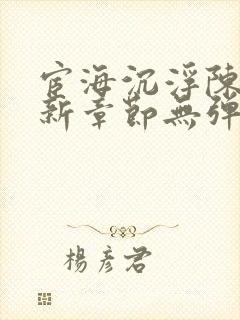 宦海沉浮陳
新章節無彈
楊彥君